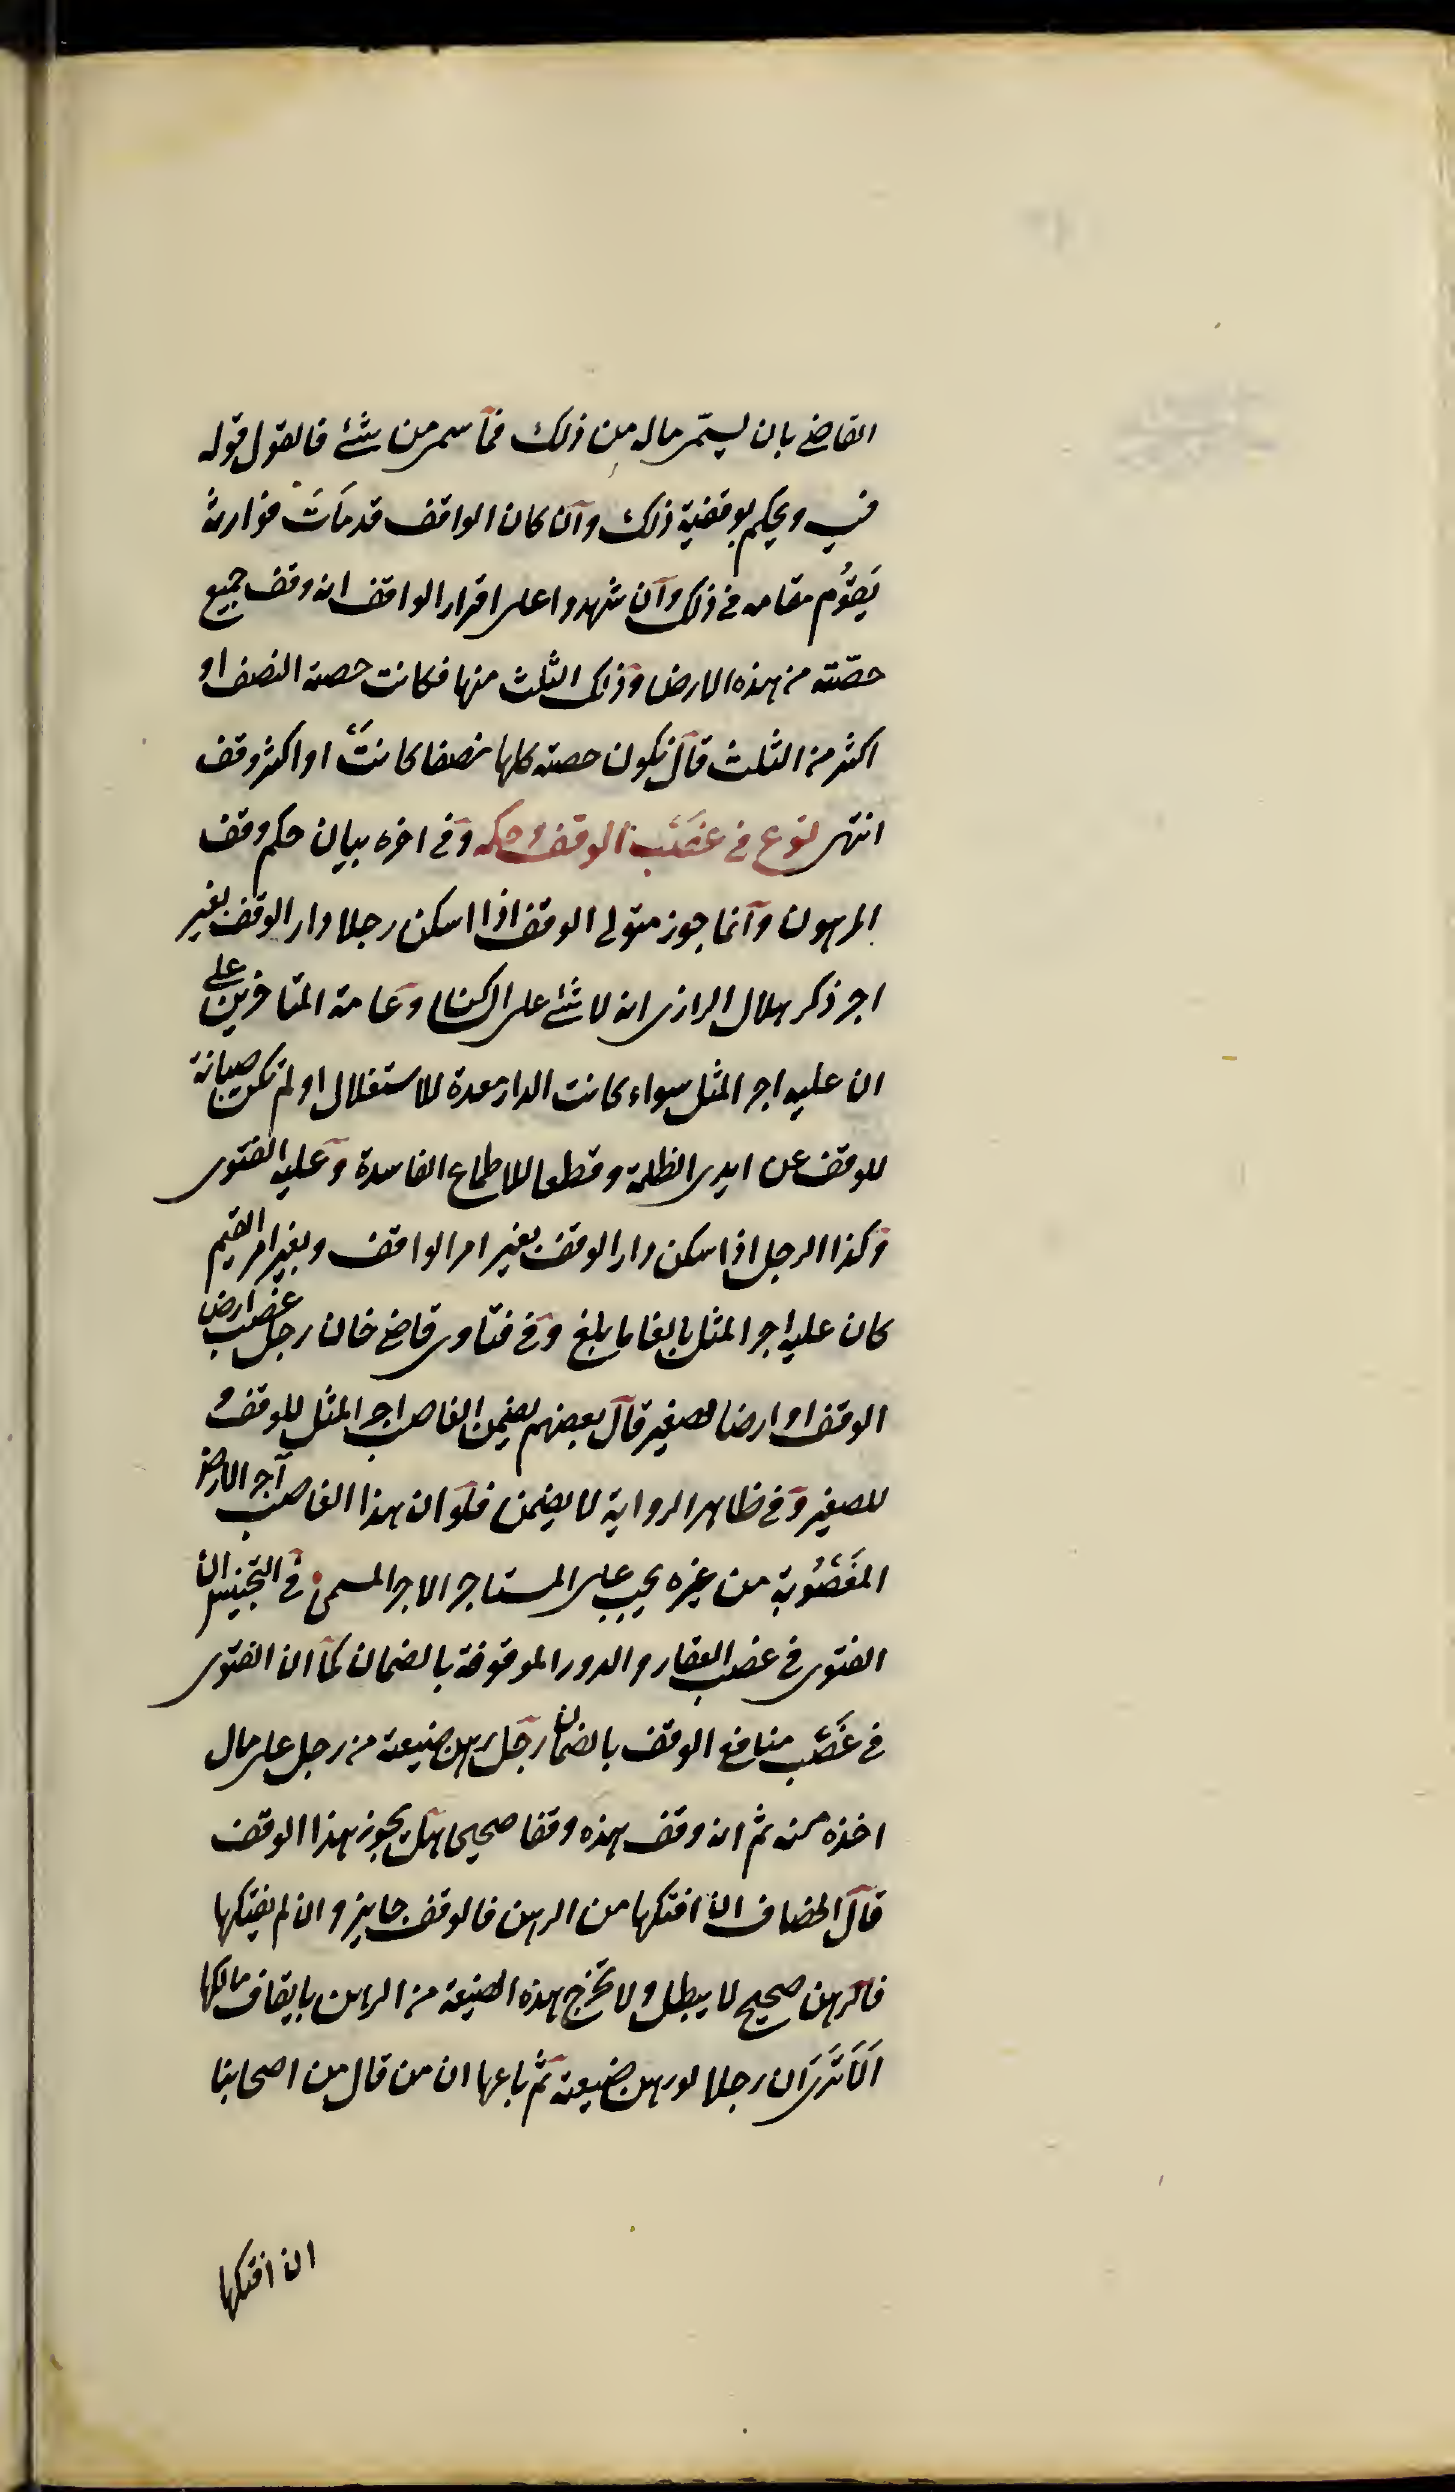 القاضي بان يسمّى ماله من ذلك فما سمى من شئ فالقول قوله
فيه ويحكم بوقفية ذلك وان كان الواقف قد مَات فوارثه
يَقوُم مقامه في ذلك وان شهدوا على اقرار الواقف انه وقف جميع
حصّته من هذه الارض وذلك الثلث منها فكانت حصته النصف او
اكثر من الثلث قال تكون حصته كلها نصفا كانت او اكثر وقف
انتهى نوع في غَصْب الوقف وحكمه وفي اخره بيان حكم وقف
المرهون وانما جوز متولى الوقف اذا اسكن رجلا دار الوقف بغير
اجر ذكر هلال الرازى انه لا شئ على الساكن وعامة المتاخرين على
ان عليه اجر المثل سواء كانت الدار معدة للاستغلال او لم تكن صيانة
للوقف عن ايدى الظلمة وقطعا للاطماع الفاسدة وعليه الفتوى
وكذا الرجل اذا سكن دار الوقف بغير امر الواقف وبغير امر القيم
كان عليه اجر المثل بالغا ما بلغ وفي فتاوى قاضي خان رجل غصب ارض
الوقف او ارضا لصغير قال بعضهم يضمن الغاصب اجر المثل للوقف و
للصغير وفي ظاهر الرواية لا يضمن فلو ان هذا الغاصب آجر الارض
المَغصُوبة من غيره يجب على المستاجر الاجر المسمى في التجنيس ان
الفتوى في غصب العقار والدور الموقوفة بالضمان كما ان الفتوى
في غَصْب منافع الوقف بالضمان رجل رهن ضيعة من رجل على مال
اخذه منه ثم انه وقف هذه وقفا صحيحا هل يجوز هذا الوقف
قال الخصاف ان افتكها من الرهن فالوقف جايز وان لم يفتكها
فالرهن صحيح لا يبطل ولا تخرج هذه الضيعة من الرهن بايقاف مالكها
اَلَا تَرَى ان رجلا لو رهن ضيعة ثم باعها ان من قال من اصحابنا
ان افتكها